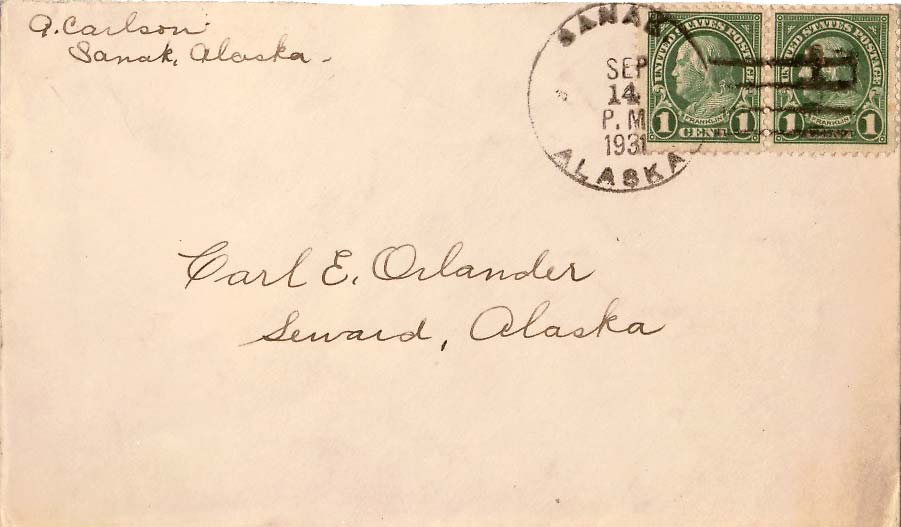 A. Carlson
Sanak, Alaska -
SANAK
SEP
14
P.M
1931
ALASKA
UNITED STATES POSTAGE
1 FRANKLIN 1
CENT
UNITED STATES POSTAGE
1 FRANKLIN 1
Carl E. Orlander
Seward, Alaska